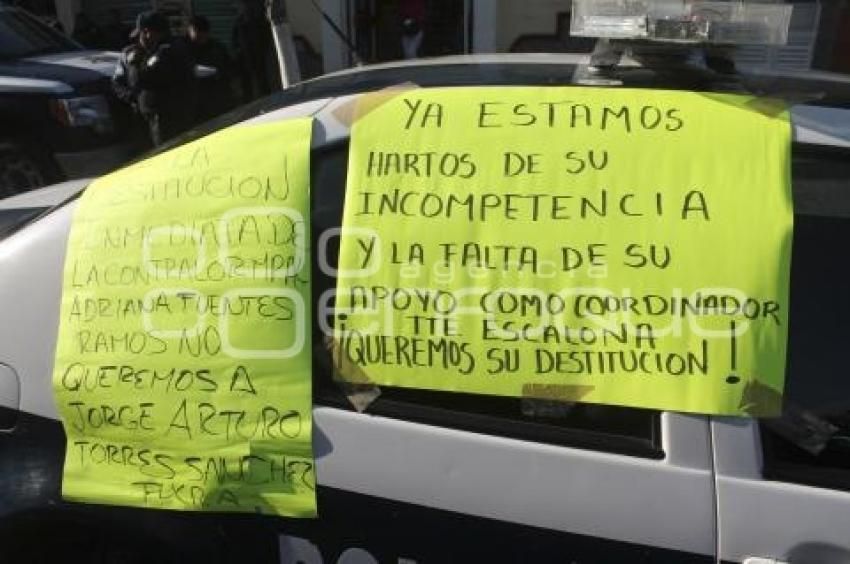 LA
DESTITUCION
INMEDIATA DE
LA CONTRALOR MPAL
ADRIANA FUENTES
RAMOS NO
QUEREMOS A
JORGE ARTURO
TORRES SANCHEZ
FUERA
YA ESTAMOS
HARTOS DE SU
INCOMPETENCIA
Y LA FALTA DE SU
APOYO COMO COORDINADOR
TTE ESCALONA
¡QUEREMOS SU DESTITUCION!
agencia
enfoque